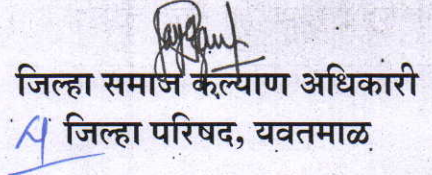 जिल्हा समाज कल्याण अधिकारी
जिल्हा परिषद, यवतमाळ